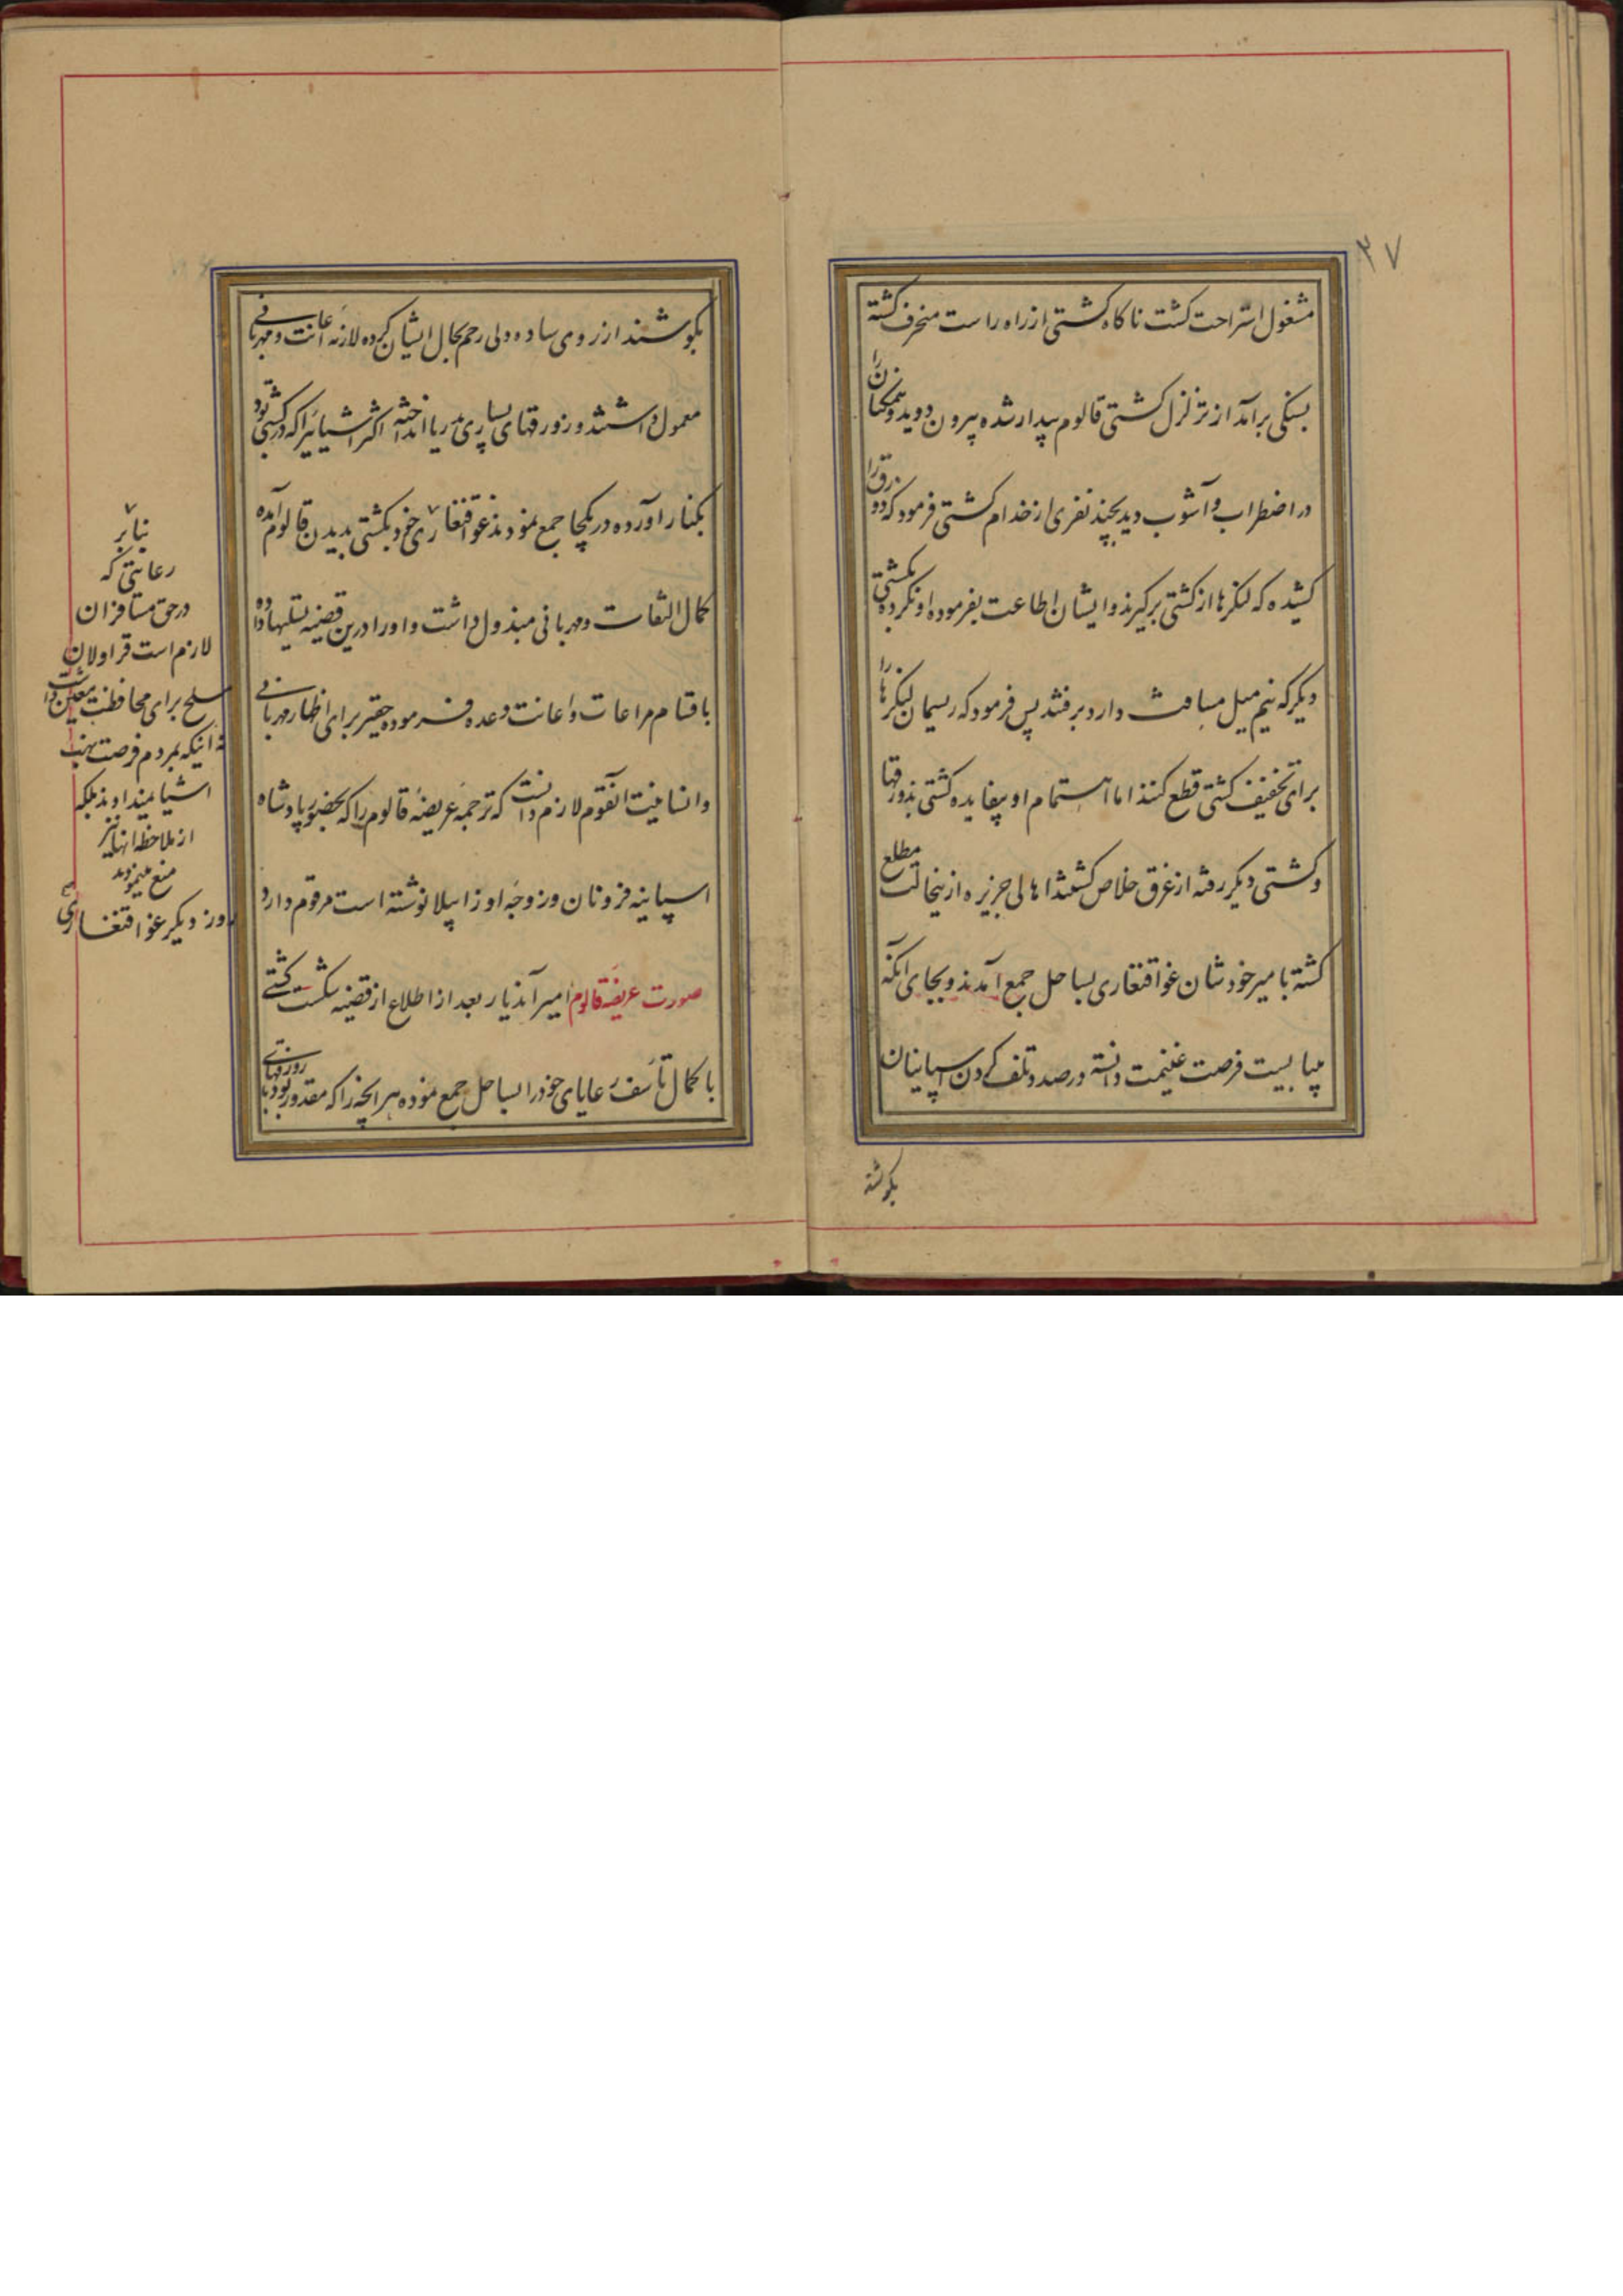 ۳۷
مشغول استراحت کشت ناکاه کشتی از راه راست منحرف کشته
بسنکی برآمد از تزلزل کشتی قالوم بیدار شده بیرون دوید و همکنان را
در اضطراب و آشوب دید بچند نفری از خدام کشتی فرمود که دو زورق را
کشیده که لنکرها از کشتی برکیرند و ایشان اطاعت بفرموده او نکرده بکشتی
دیکر که نیم میل مسافت دارد برفتند پس فرمود که ریسمان لنکرها را
برای تخفیف کشتی قطع کنند اما اهتمام او بیفایده کشتی بذورقها
و کشتی دیکر رفته از غرق خلاص کشتند اهالی جزیره ازینحالت مطلع
کشته با میر خودشان غواقنغاری بساحل جمع آمدند و بجای آنکه
میبایست فرصت غنیمت دانسته درصدد تلف کردن اسپانیان
بکوشند
بکوشند از روی ساده دلی رحم بحال ایشان کرده لازمه اعانت و مهربانی
معمول داشتند و زورقهای بسیاری بدریا انداخته اکثر اشیائیرا که در کشتی بود
بکنار آورده در یکجا جمع نمودند غواقنغاری خود بکشتی بدیدن قالوم آمده
کمال التفات و مهربانی مبذول داشت و او را درین قضیه تسلیها داده
باقسام مراعات و اعانت وعده فرموده حقیر برای اظهار مهربانی
و انسانیت آنقوم لازم دانست که ترجمه عریضه قالوم را که بحضور پادشاه
اسپانیه فزونان و زوجه او زابیلا نوشته است مرقوم دارد
صورت عریضه قالوم امیر آندیار بعد از اطلاع از قضیه شکست کشتی
با کمال تأسف رعایای خود را بساحل جمع نموده هر آنچه را که مقدور بود با زورقهای
بنابر
رعایتی که
در حق مسافران
لازم است قراولان
مسلح برای محافظت معین داشت
نه اینکه بمردم فرصت نهب
اشیا میدادند بلکه
از ملاحظه آنها نیز
منع مینمودند
روز دیکر غواقنغاری